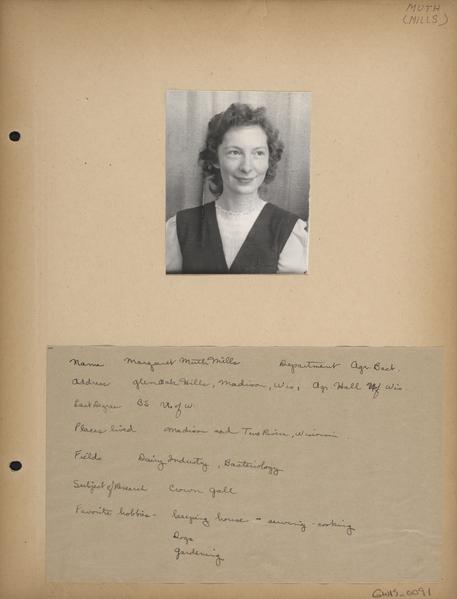 MUTH
(MILLS)
Name Margaret Muth Mills Department Agr Bact.
Address Glen Oak Hills, Madison, Wis, Agr Hall U of Wis.
Last Degree BS U of W.
Places lived Madison and Two Rivers, Wisconsin.
Fields Dairy Industry, Bacteriology
Subject of Research Crown gall
Favorite hobbies - keeping house - sewing - cooking
Dogs
Gardening
GWIS_0091